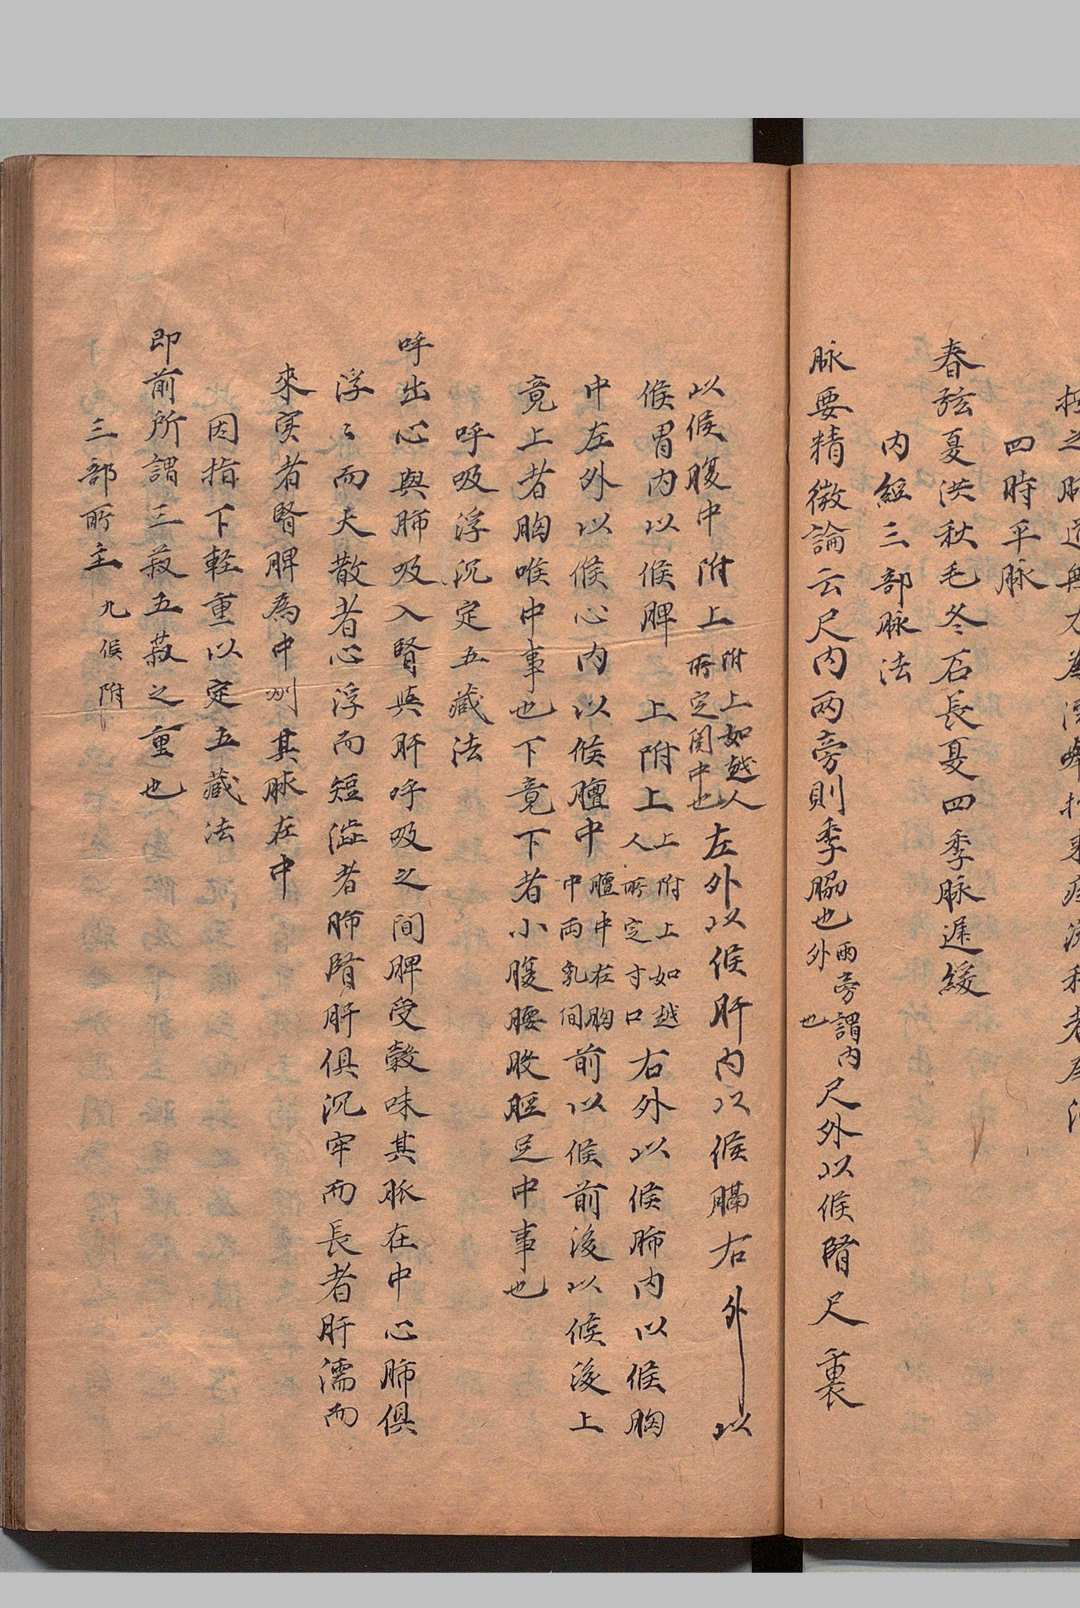 四時平脉
春弦夏洪秋毛冬石長夏四季脉遅緩
内經三部脉法
脉要精微論云尺内兩旁則季脇也兩旁謂内外也尺外以候腎尺裏
以候腹中附上附上如越人所定関中也左外以候肝内以候膈右外以
候胃内以候脾上附上上附上如越人所定寸口右外以候肺内以候胸
中左外以候心内以候膻中膻中在胸中両乳間前以候前後以候後上
竟上者胸喉中事也下竟下者小腹腰股脛足中事也
呼吸浮沉定五蔵法
呼出心與肺吸入腎與肝呼吸之間脾受穀味其脈在中心肺俱
浮〻而大散者心浮而短澁者肺腎肝俱沉牢而長者肝濡而
來実者腎脾為中州其脉在中
因指下軽重以定五蔵法
即前所謂三菽五菽之重也
三部所主九候附